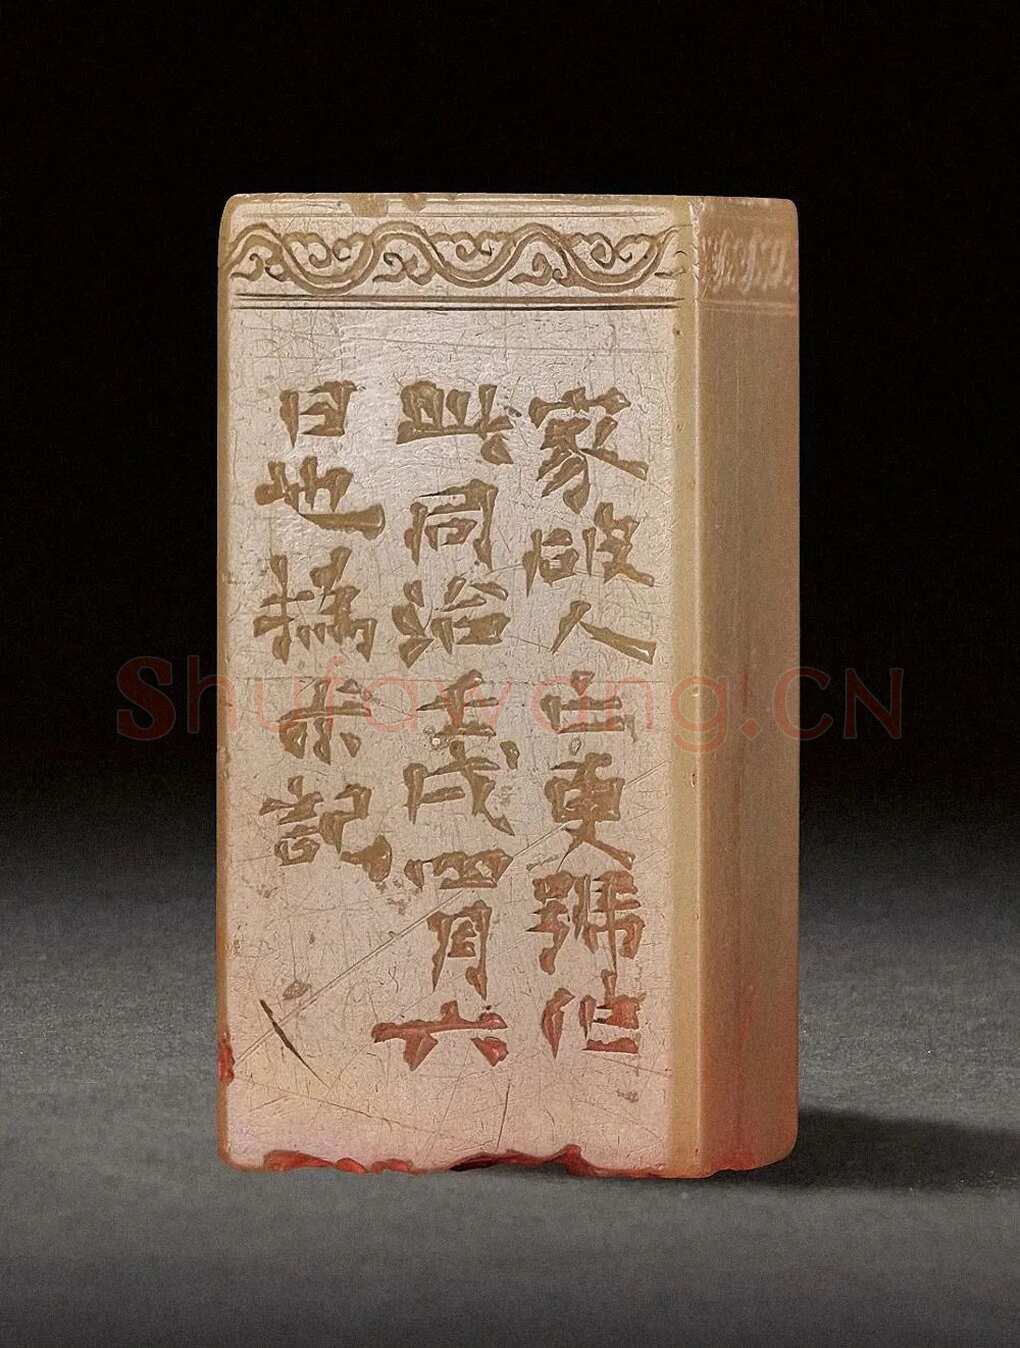 家破人亡更號作
此同治壬戌四月六
日也撝尗記
Shufawang.CN